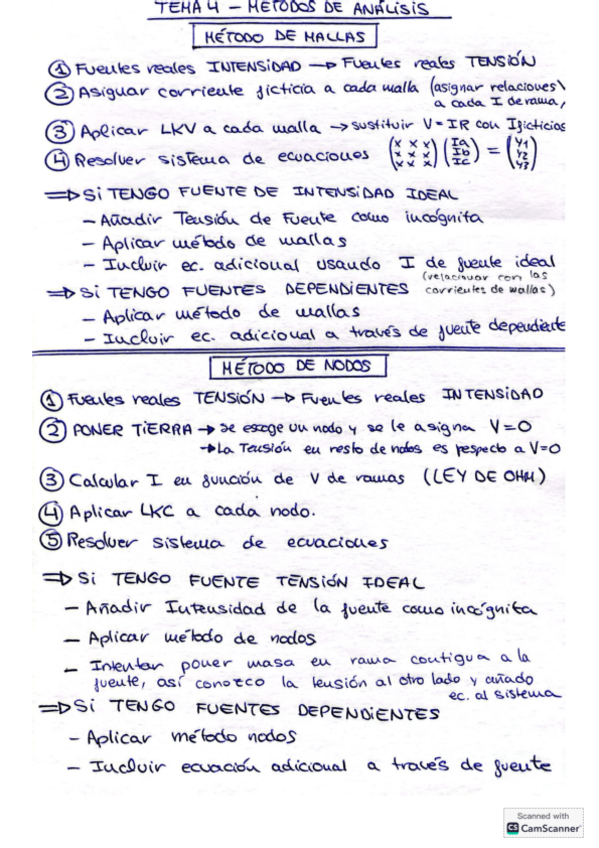 TEMA 4 - METODOS DE ANÁLISIS
MÉTODO DE MALLAS
① Fuentes reales INTENSIDAD → Fuentes reales TENSIÓN
② Asignar corriente ficticia a cada malla (asignar relaciones
a cada I de rama,
③ Aplicar LKV a cada malla → sustituir V=IR con Ificticias
④ Resolver sistema de ecuaciones (x x x x x x x x x) (Ia Ib Ic) = (Y1 Y2 Y3)
⇒ Si TENGO FUENTE DE INTENSIDAD IDEAL
- Añadir Tensión de Fuente como incógnita
- Aplicar método de mallas
- Incluir ec. adicional usando I de fuente ideal
(relacionar con las
⇒ Si TENGO FUENTES DEPENDIENTES corrientes de mallas)
- Aplicar método de mallas
- Incluir ec. adicional a través de fuente dependiente
MÉTODO DE NODOS
① Fuentes reales TENSIÓN → Fuentes reales INTENSIDAD
② PONER TIERRA → se escoge un nodo y se le asigna V=0
→ La Tensión en resto de nodos es respecto a V=0
③ Calcular I en función de V de ramas (LEY DE OHM)
④ Aplicar LKC a cada nodo.
⑤ Resolver sistema de ecuaciones
⇒ Si TENGO FUENTE TENSIÓN IDEAL
- Añadir Intensidad de la fuente como incógnita
- Aplicar método de nodos
- Intentar poner masa en rama contigua a la
fuente, así conozco la tensión al otro lado y añado
ec. al sistema
⇒ Si TENGO FUENTES DEPENDIENTES
- Aplicar método nodos
- Incluir ecuación adicional a través de fuente
Scanned with
CS CamScanner